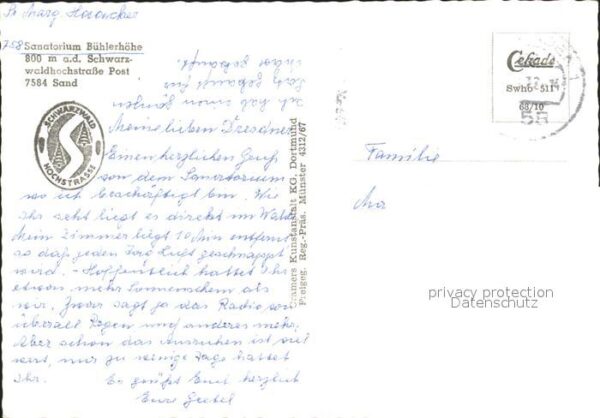 758
Sanatorium Bühlerhöhe
800 m a.d. Schwarz-
waldhochstraße Post
7584 Sand
SCHWARZWALD
HOCHSTRASSE
Meine lieben Dresdner
Einen herzlichen Gruß
von dem Sanatorium
wo ich beschäftigt bin. Wie
Ihr seht liegt es direkt im Wald
Mein Zimmer liegt 10 Min entfernt
so daß jeden Tag Luft geschnappt
wird. - Hoffentlich hattet Ihr
etwas mehr Sonnenschein als
wir. Zwar sagt ja das Radio von
überall Regen und anderes mehr.
Aber schon das Ausruhen ist viel
wert, nur zu wenige Tage hattet
Ihr. Es grüßt Euch herzlich
Eure Gretel
Cramers Kunstanstalt KG, Dortmund
Freigeg. Reg.-Präs. Münster 4312/67
Cekade
Swho 511
68/10
55
Familie
privacy protection
Datenschutz